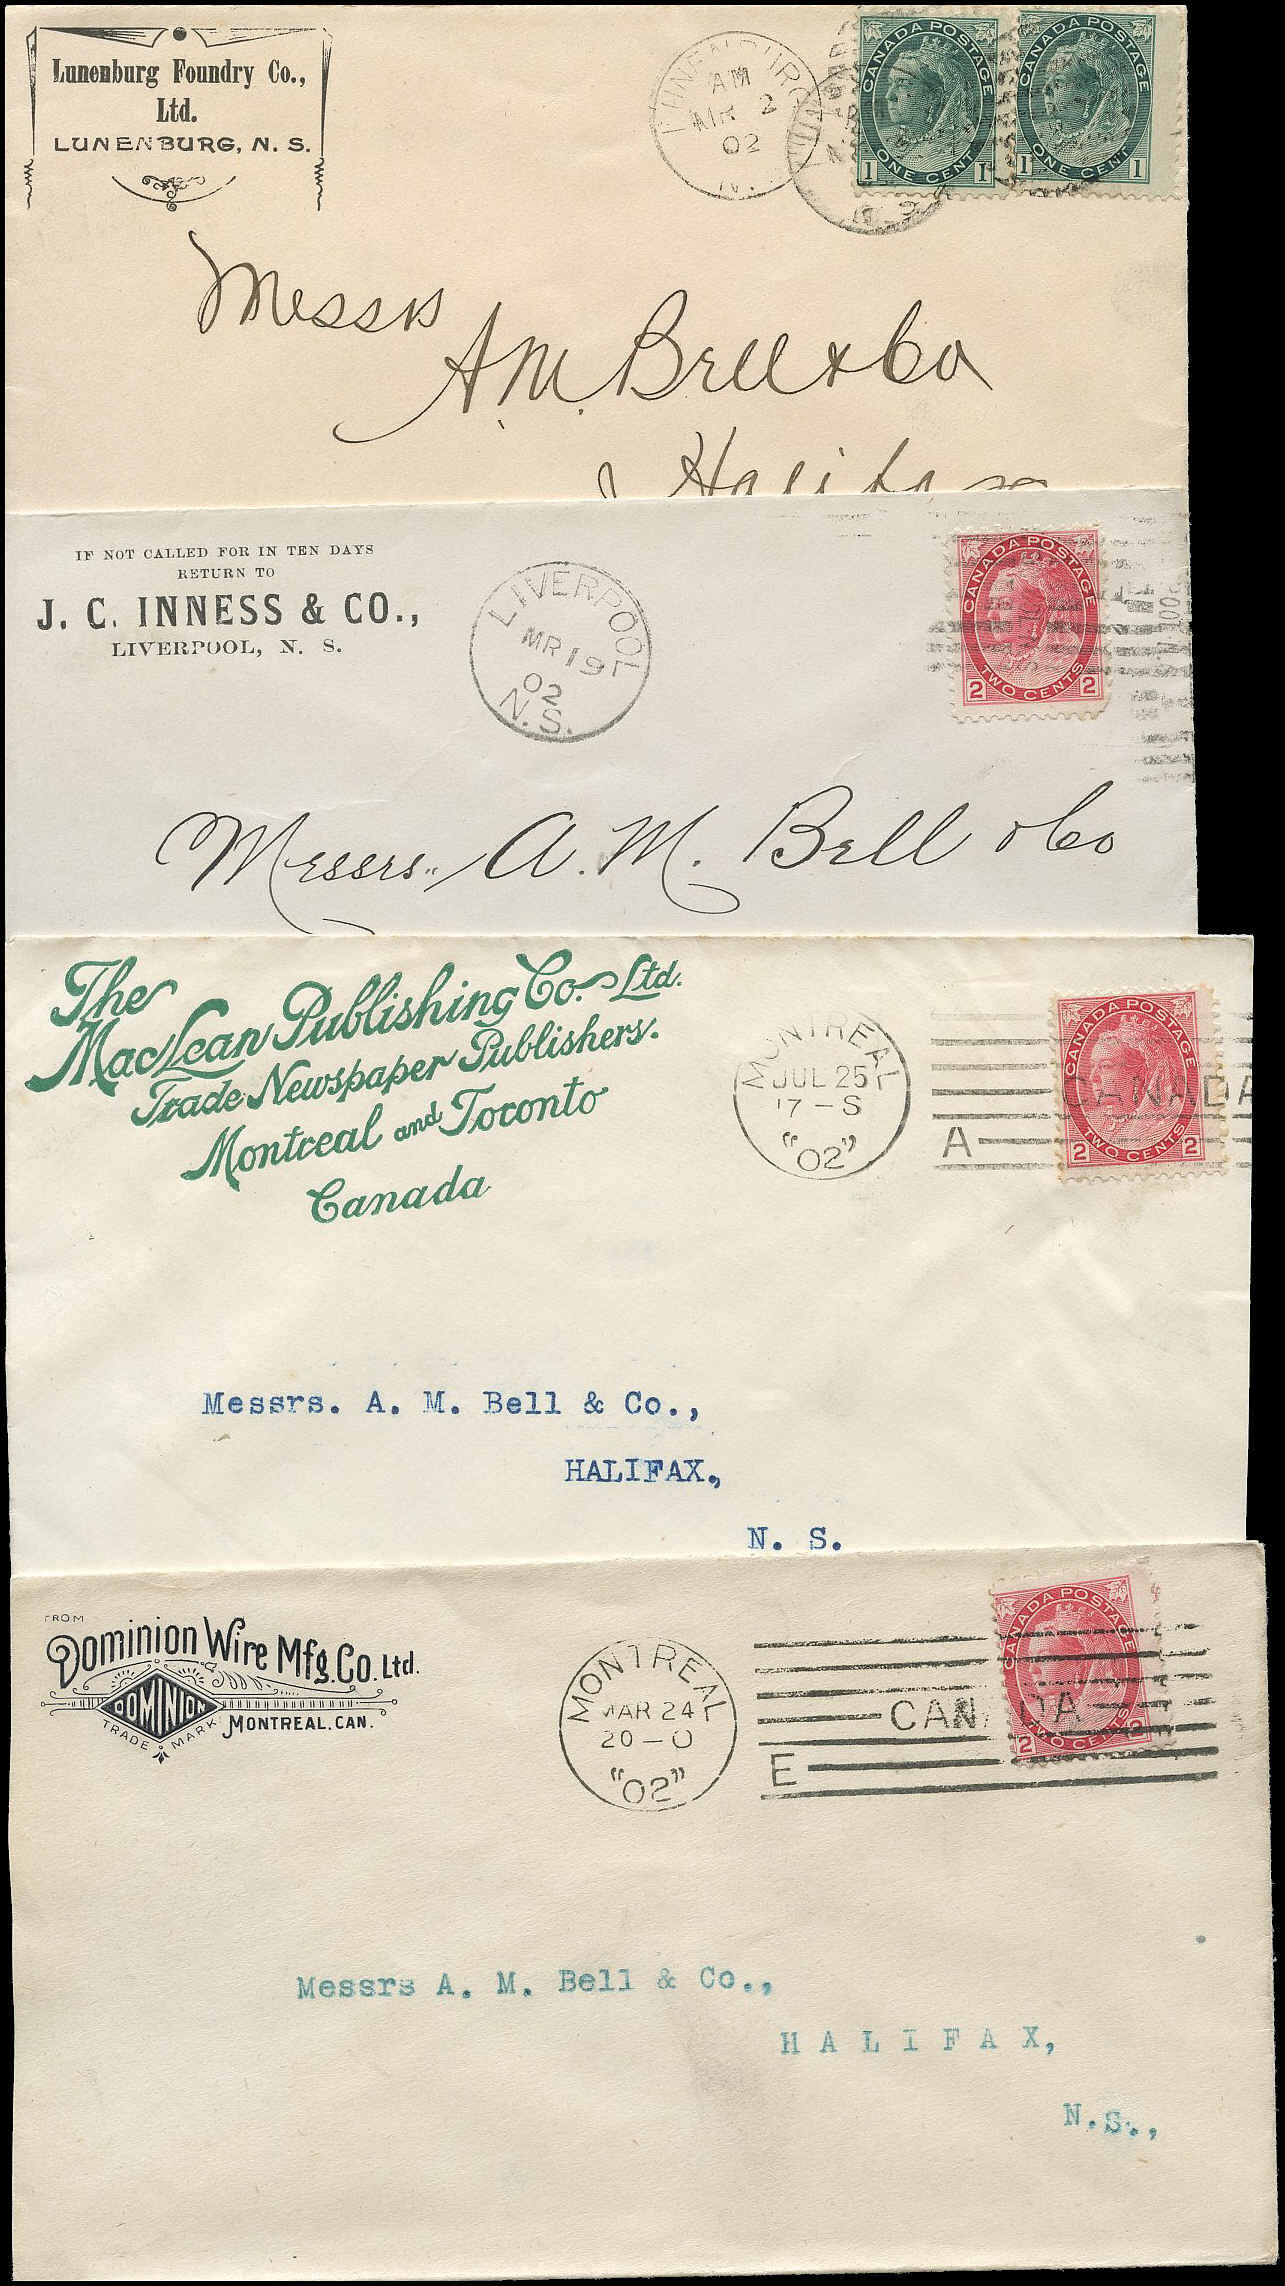 Lunenburg Foundry Co.,
Ltd.
LUNENBURG, N. S.
AM
MR 2
02
N.
CANADA POSTAGE
1 ONE CENT 1
CANADA POSTAGE
1 ONE CENT 1
Messrs
A. M. Bell & Co
Halifax
IF NOT CALLED FOR IN TEN DAYS
RETURN TO
J. C. INNESS & CO.,
LIVERPOOL, N. S.
LIVERPOOL
MR 19
02
N.S.
CANADA POSTAGE
2 TWO CENTS 2
Messrs. A. M. Bell & Co
The
MacLean Publishing Co. Ltd.
Trade Newspaper Publishers.
Montreal and Toronto
Canada
MONTREAL
JUL 25
17-S
"02"
CANADA
A
CANADA POSTAGE
2 TWO CENTS 2
Messrs. A. M. Bell & Co.,
HALIFAX,
N. S.
FROM
Dominion Wire Mfg. Co. Ltd.
DOMINION
TRADE MARK
MONTREAL. CAN.
MONTREAL
MAR 24
20-0
"02"
CANADA
E
CANADA POSTAGE
2 TWO CENTS 2
Messrs A. M. Bell & Co.,
HALIFAX,
N.S.,